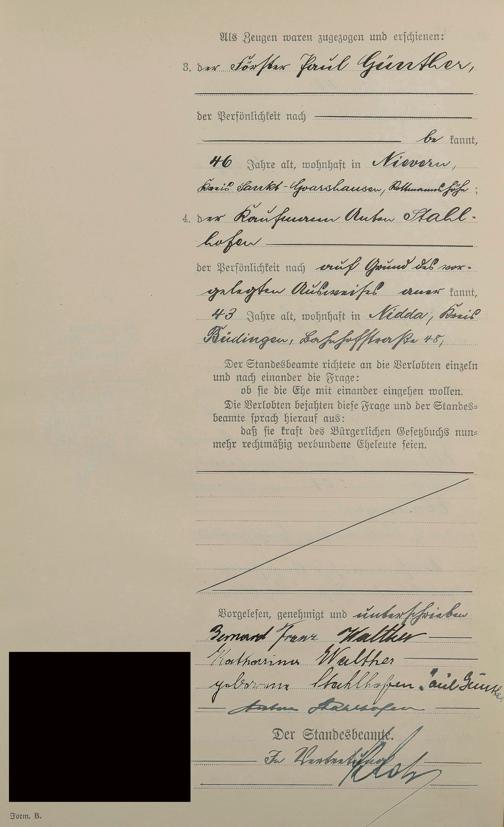 Als Zeugen waren zugezogen und erschienen:
3. der Förster Paul Günther,
der Persönlichkeit nach
be kannt,
46 Jahre alt, wohnhaft in Nievern,
Kreis Sankt-Goarshausen, Rottmannshöhe;
4. der Kaufmann Anton Stahl-
hofen
der Persönlichkeit nach auf Grund des vor-
gelegten Ausweises aner kannt,
43 Jahre alt, wohnhaft in Nidda, Kreis
Büdingen, Bahnhofstraße 48,
Der Standesbeamte richtete an die Verlobten einzeln
und nach einander die Frage:
ob sie die Ehe mit einander eingehen wollen.
Die Verlobten bejahten diese Frage und der Standes-
beamte sprach hierauf aus:
daß sie kraft des Bürgerlichen Gesetzbuchs nun-
mehr rechtmäßig verbundene Eheleute seien.
Vorgelesen, genehmigt und unterschrieben
Bernard Franz Walther
Katharina Walther
geborene Stahlhofen. Paul Günther
Anton Stahlhofen
Der Standesbeamte.
In Vertretung
Form. B.